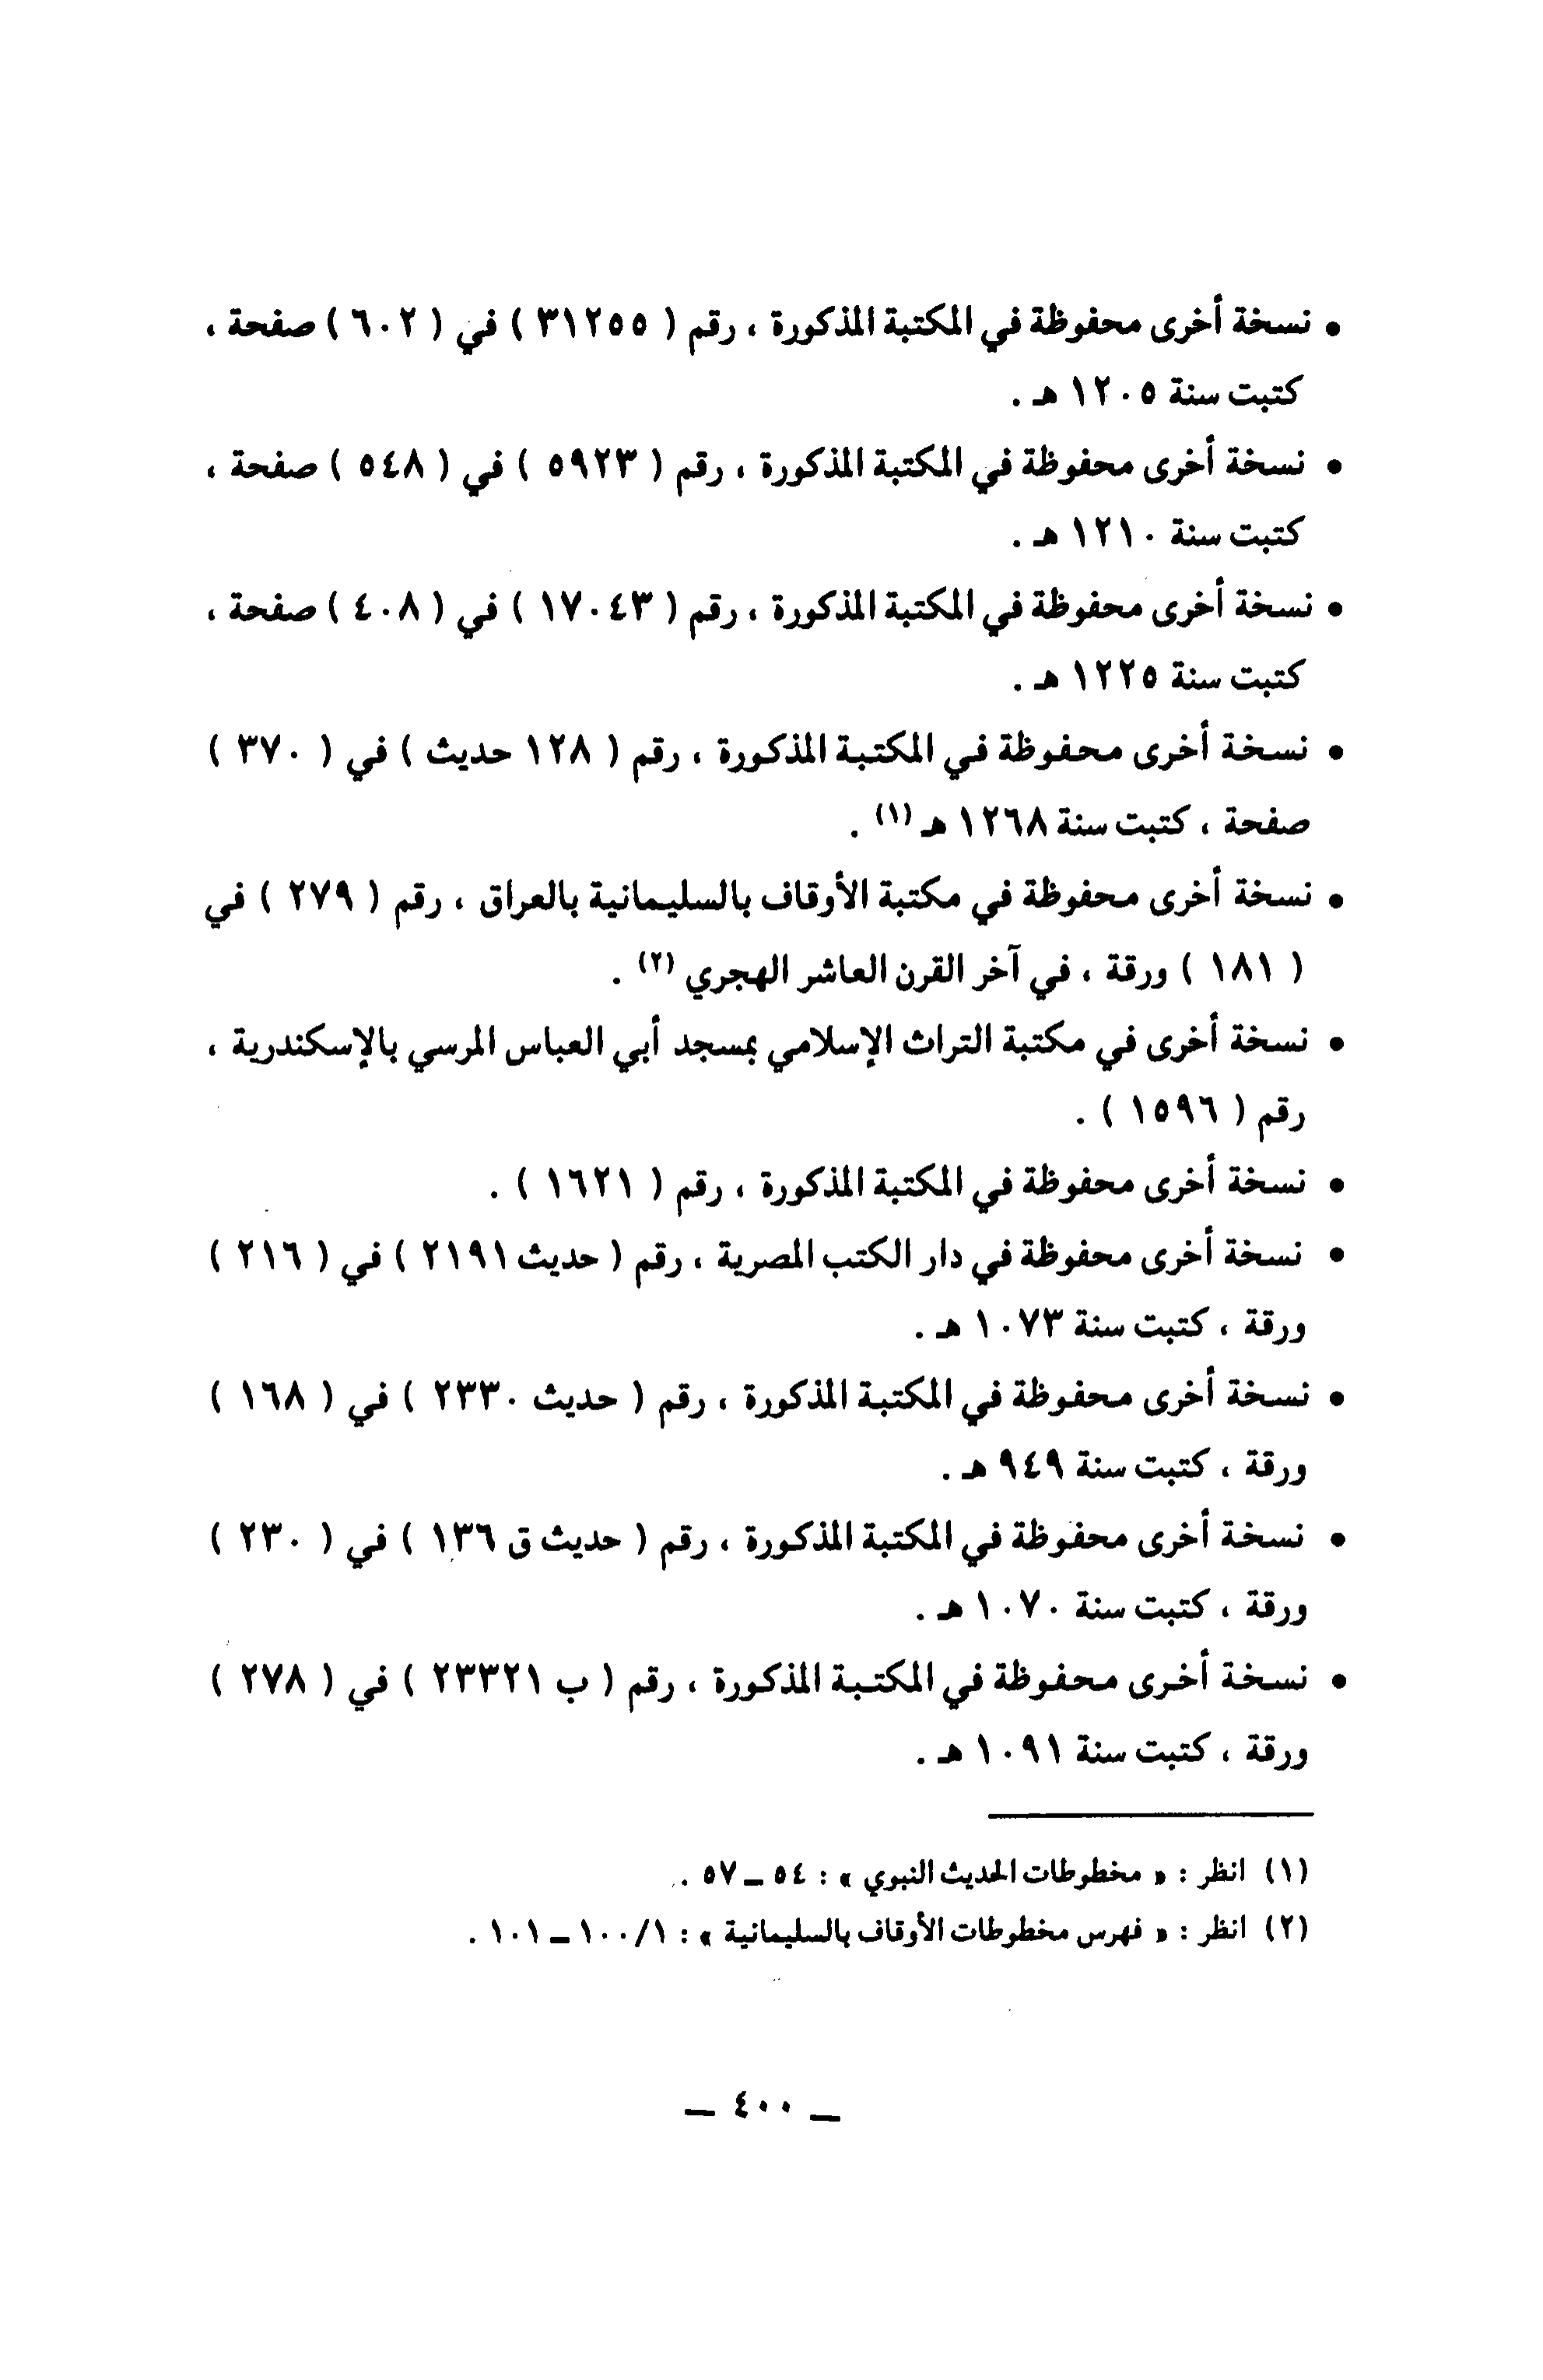 • نسخة أخرى محفوظة في المكتبة المذكورة ، رقم ( ٣١٢٥٥ ) في ( ٦٠٢ ) صفحة ،
كتبت سنة ١٢٠٥ هـ .
• نسخة أخرى محفوظة في المكتبة المذكورة ، رقم ( ٥٩٢٣ ) في ( ٥٤٨ ) صفحة ،
كتبت سنة ١٢١٠ هـ .
• نسخة أخرى محفوظة في المكتبة المذكورة ، رقم ( ١٧٠٤٣ ) في ( ٤٠٨ ) صفحة ،
كتبت سنة ١٢٢٥ هـ .
• نسخة أخرى محفوظة في المكتبة المذكورة ، رقم ( ١٢٨ حديث ) في ( ٣٧٠ )
صفحة ، كتبت سنة ١٢٦٨ هـ (١) .
• نسخة أخرى محفوظة في مكتبة الأوقاف بالسليمانية بالعراق ، رقم ( ٢٧٩ ) في
( ١٨١ ) ورقة ، في آخر القرن العاشر الهجري (٢) .
• نسخة أخرى في مكتبة التراث الإسلامي بمسجد أبي العباس المرسي بالإسكندرية ،
رقم ( ١٥٩٦ ) .
• نسخة أخرى محفوظة في المكتبة المذكورة ، رقم ( ١٦٢١ ) .
• نسخة أخرى محفوظة في دار الكتب المصرية ، رقم ( حديث ٢١٩١ ) في ( ٢١٦ )
ورقة ، كتبت سنة ١٠٧٣ هـ .
• نسخة أخرى محفوظة في المكتبة المذكورة ، رقم ( حديث ٢٣٣٠ ) في ( ١٦٨ )
ورقة ، كتبت سنة ٩٤٩ هـ .
• نسخة أخرى محفوظة في المكتبة المذكورة ، رقم ( حديث ق ١٣٦ ) في ( ٢٣٠ )
ورقة ، كتبت سنة ١٠٧٠ هـ .
• نسخة أخرى محفوظة في المكتبة المذكورة ، رقم ( ب ٢٣٣٢١ ) في ( ٢٧٨ )
ورقة ، كتبت سنة ١٠٩١ هـ .
(١) انظر : « مخطوطات الحديث النبوي » : ٥٤ ـ ٥٧ .
(٢) انظر : « فهرس مخطوطات الأوقاف بالسليمانية » : ١٠٠/١ ـ ١٠١ .
ـ ٤٠٠ ـ